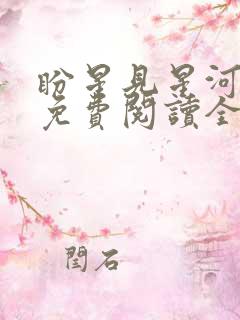 盼星見星河
免費閱讀全
閆石